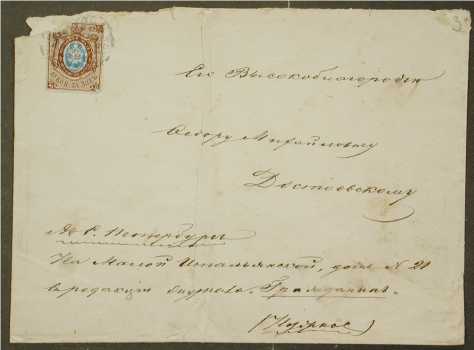 Его Высокоблагородію
Ѳедору Михайловичу
Достоевскому
В С. Петербургъ
На Малой Итальянской, домъ N 21
въ редакцію журнала "Гражданинъ".